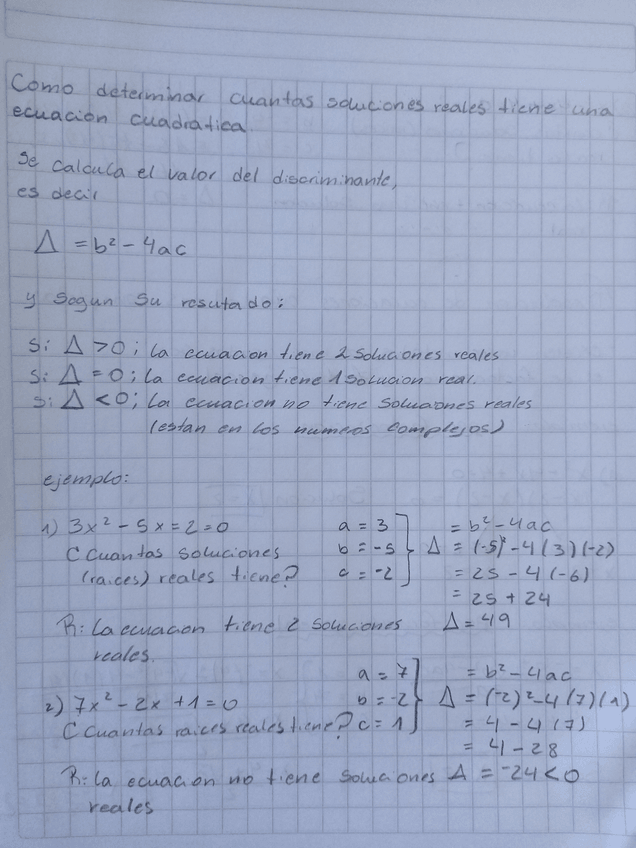 Como determinar cuantas soluciones reales tiene una
ecuación cuadratica.
Se calcula el valor del discriminante,
es decir
Δ = b² - 4ac
y sogun su resutado:
Si Δ > 0; la ecuacion tiene 2 soluciones reales
Si Δ = 0; la ecuacion tiene 1 solucion real.
Si Δ < 0; la ecuacion no tiene soluciones reales
(estan en los numeros complejos)
ejemplo:
1) 3x² - 5x = 2 = 0 a = 3 = b² - 4ac
C Cuantas soluciones b = -5 Δ = (-5)² - 4(3)(-2)
(raices) reales tiene? c = -2 = 25 - 4(-6)
= 25 + 24
R: La ecuacion tiene 2 soluciones Δ = 49
reales.
a = 7 = b² - 4ac
2) 7x² - 2x + 1 = 0 b = -2 Δ = (-2)² - 4(7)(1)
C Cuantas raices reales tiene? c = 1 = 4 - 4(7)
= 4 - 28
R: la ecuacion no tiene soluciones Δ = -24 < 0
reales